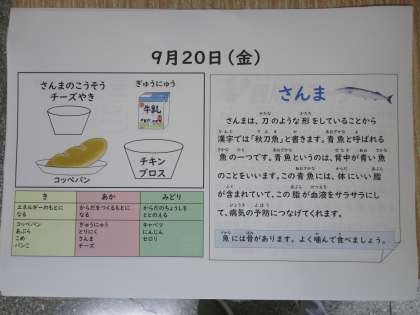 9月20日(金)
さんまのこうそう
チーズやき
ぎゅうにゅう
牛乳
コッペパン
チキン
ブロス
き
あか
みどり
エネルギーのもとに
なる
からだをつくるもとに
なる
からだのちょうしを
ととのえる
コッペパン
あぶら
こめ
パンこ
ぎゅうにゅう
とりにく
さんま
チーズ
キャベツ
にんじん
セロリ
さんま
さんまは、刀のような形をしていることから
漢字では「秋刀魚」と書きます。青魚と呼ばれる
魚の一つです。青魚というのは、背中が青い魚
のことをいいます。この青魚には、体にいい脂
が含まれていて、この脂が血液をサラサラにし
て、病気の予防につなげてくれます。
魚には骨があります。よく噛んで食べましょう。